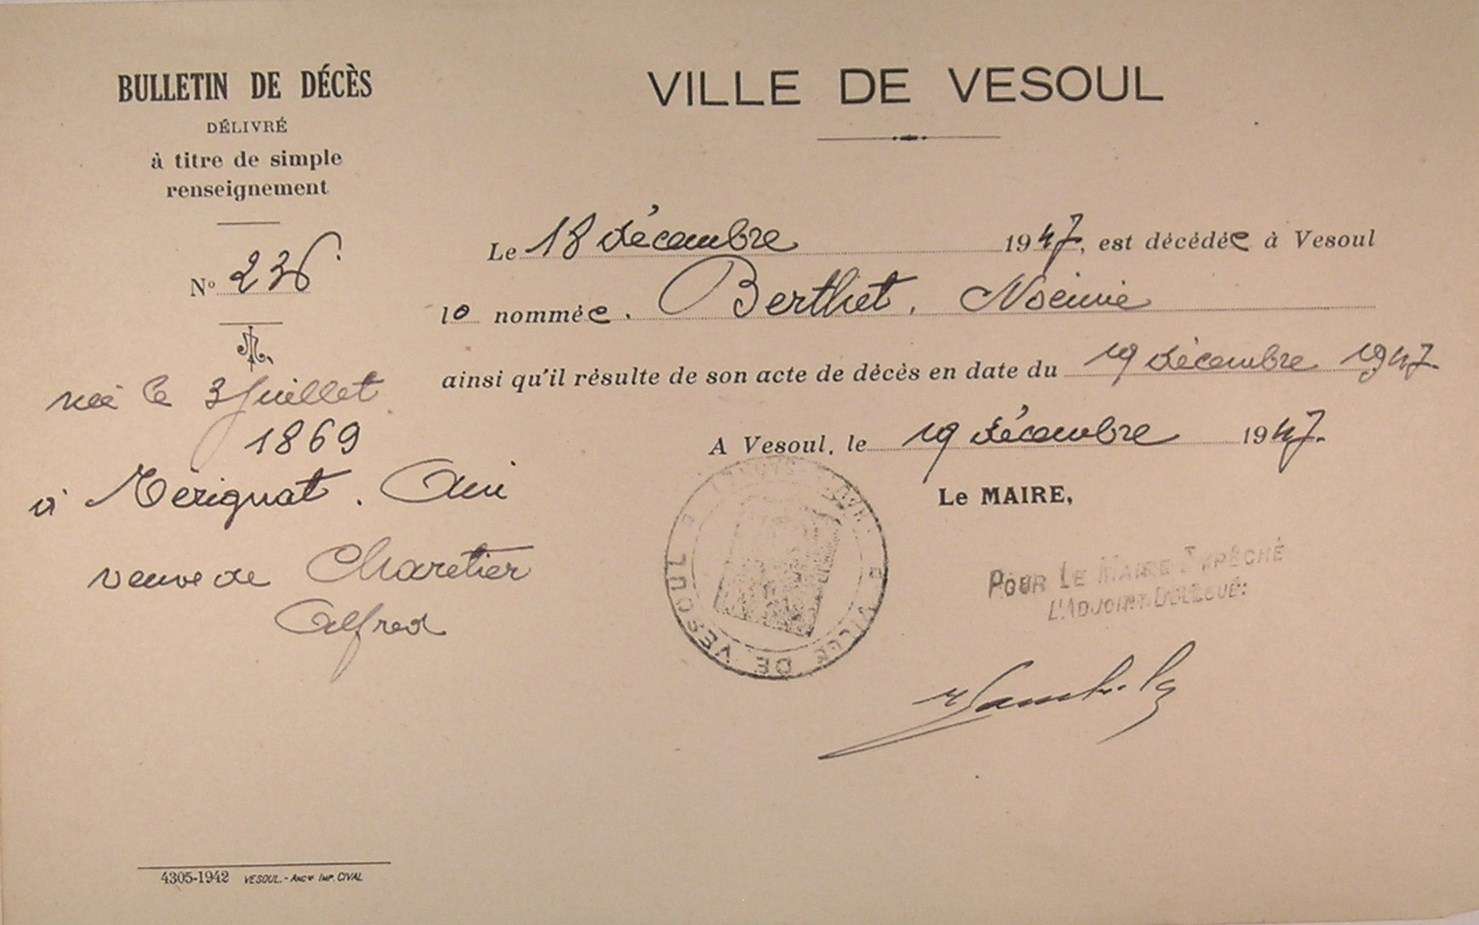 BULLETIN DE DÉCÈS
DÉLIVRÉ
à titre de simple
renseignement
N° 236
née le 3 Juillet
1869
à Mérignat. Ain
veuve de Charetier
Alfred
4305-1942 VESOUL.-ANCne IMP. CIVAL
VILLE DE VESOUL
Le 18 décembre 1947, est décédée à Vesoul
la nommée. Berthet. Noémie
ainsi qu'il résulte de son acte de décès en date du 19 décembre 1947.
A Vesoul, le 19 décembre 1947.
Le MAIRE,
POUR LE MAIRE EMPÊCHÉ
L'ADJOINT DÉLÉGUÉ:
VILLE DE VESOUL